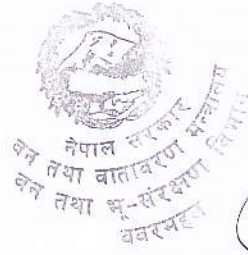 नेपाल सरकार
वन तथा वातावरण मन्त्रालय
वन तथा भू-संरक्षण विभाग
ववरमहल